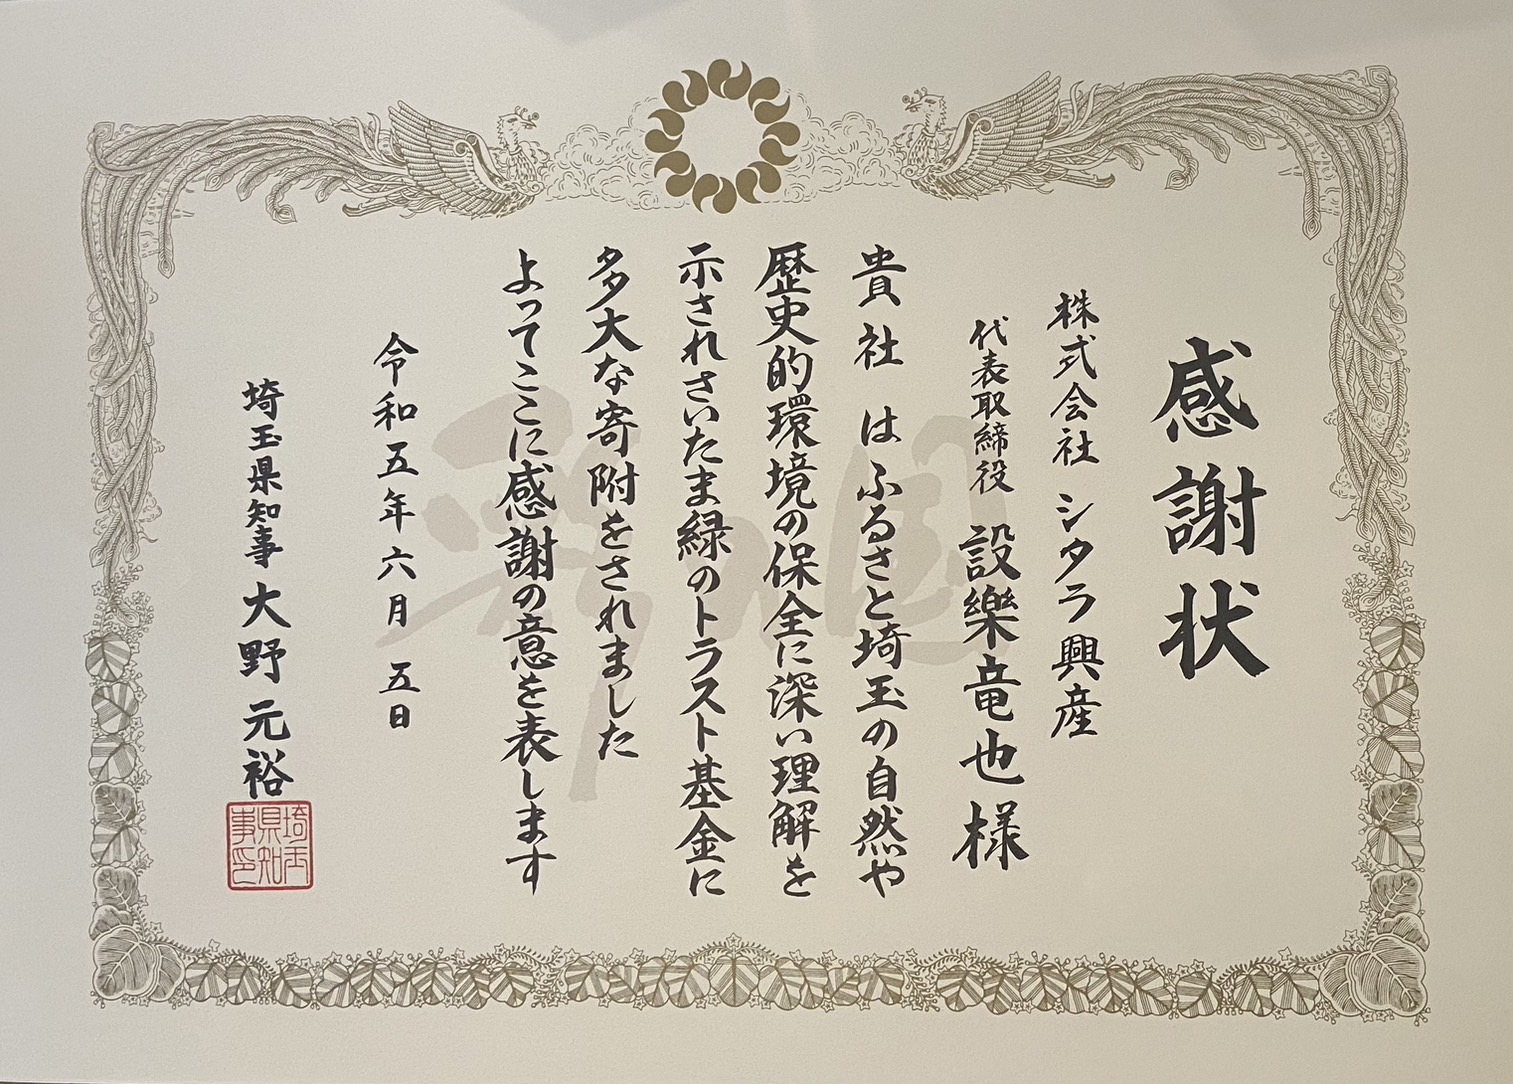 感謝状
株式会社 シタラ興産
代表取締役 設樂竜也様
貴社 はふるさと埼玉の自然や
歴史的環境の保全に深い理解を
示されさいたま緑のトラスト基金に
多大な寄附をされました
よってここに感謝の意を表します
令和五年六月 五日
埼玉県知事 大野元裕
埼玉
県知
事印
彩の国